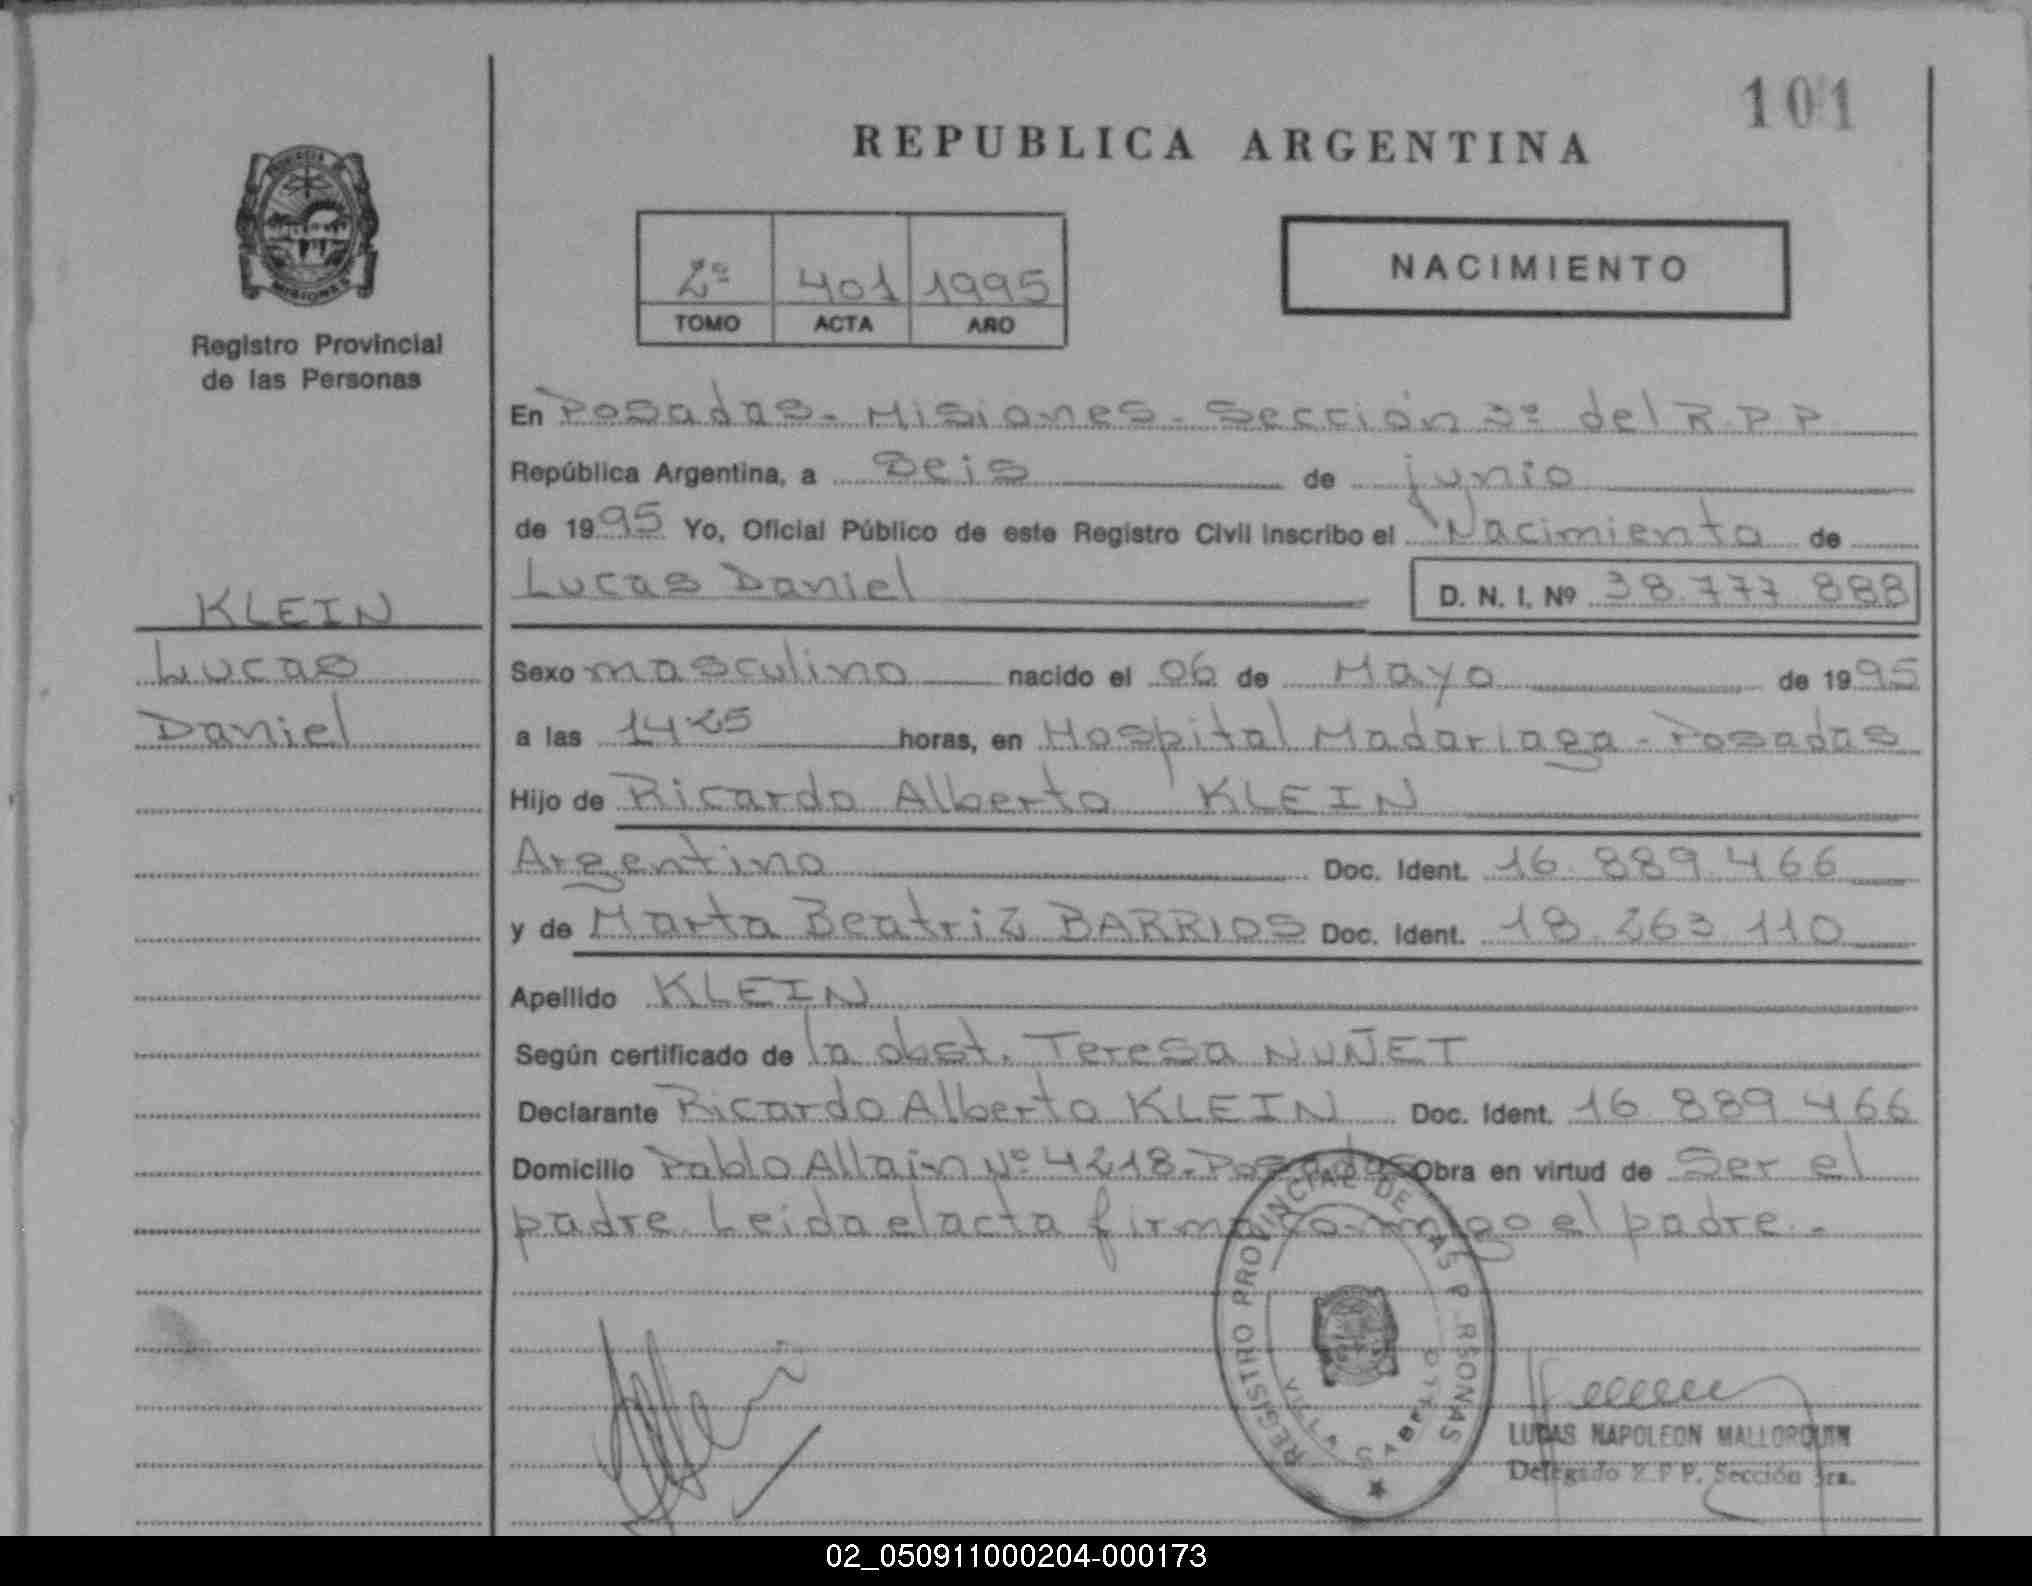 101
REPUBLICA ARGENTINA
PROVINCIA
MISIONES
Registro Provincial
de las Personas
2º 401 1995
TOMO ACTA AÑO
NACIMIENTO
En Posadas - Misiones - Sección 3º del R.P.P.
República Argentina, a Seis de junio
de 1995 Yo, Oficial Público de este Registro Civil inscribo el Nacimiento de
Lucas Daniel D. N. I. Nº 38.777.888
KLEIN
Lucas
Daniel
Sexo masculino nacido el 06 de Mayo de 1995
a las 14 25 horas, en Hospital Madariaga - Posadas
Hijo de Ricardo Alberto KLEIN
Argentino Doc. Ident. 16.889.466
y de Marta Beatriz BARRIOS Doc. Ident. 18.263.110
Apellido KLEIN
Según certificado de la obst. Teresa NUÑET
Declarante Ricardo Alberto KLEIN Doc. Ident. 16.889.466
Domicilio Pablo Allain Nº 4218 - Posadas Obra en virtud de Ser el
padre. Leida el acta firma conmigo el padre. -
REGISTRO PROVINCIAL DE LAS PERSONAS
LUCAS NAPOLEON MALLORQUIN
Delegado R.P.P. Sección 3ra.
02_050911000204-000173